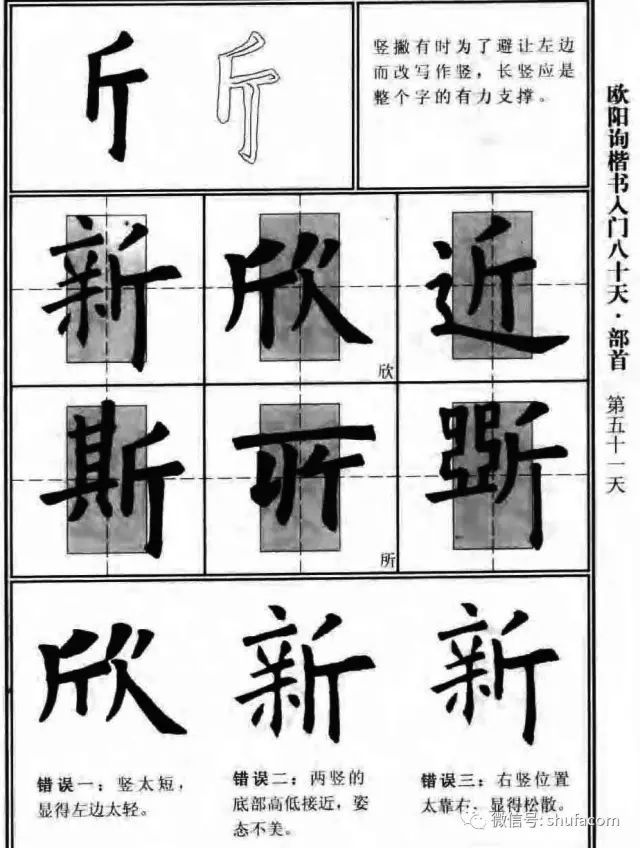 斤
斤
竖撇有时为了避让左边
而改写作竖，长竖应是
整个字的有力支撑。
欧阳询楷书入门八十天·部首
第五十一天
新
欣
近
欣
斯
所
所
欣
新
新
错误一：竖太短，
显得左边太轻。
错误二：两竖的
底部高低接近，姿
态不美。
错误三：右竖位置
太靠右，显得松散。
微信号：shufacom